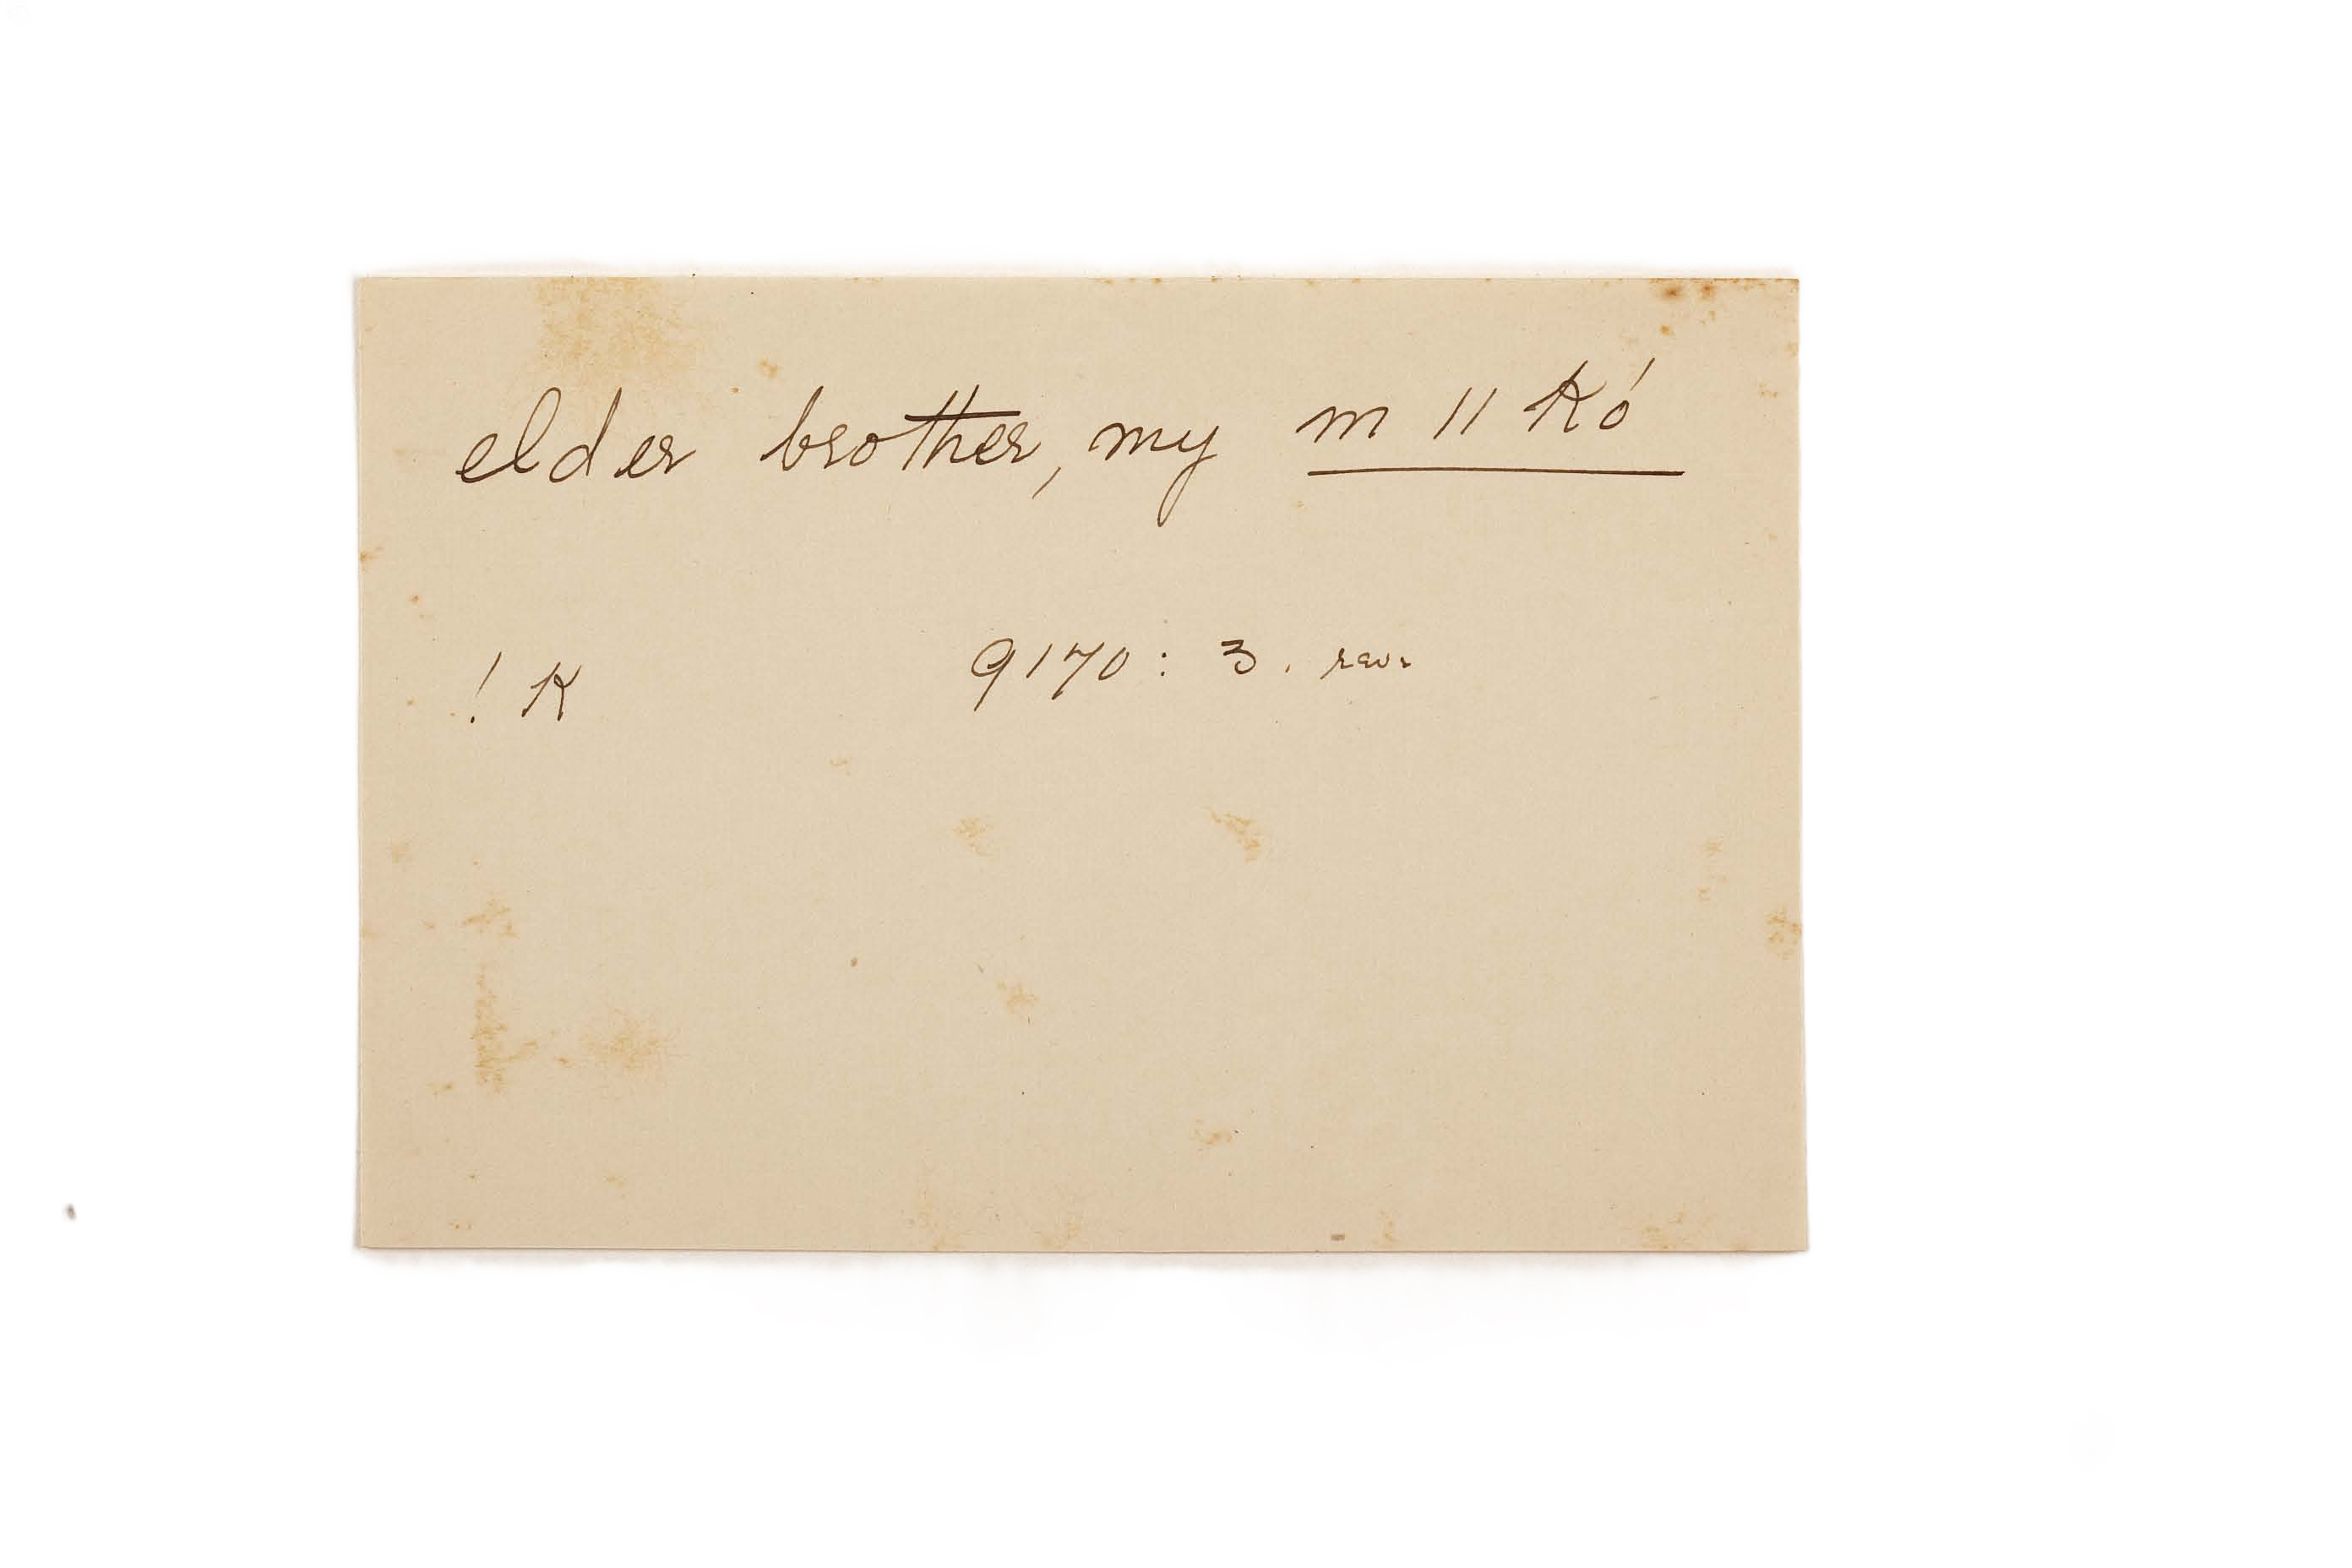 elder brother, my m ǁ kó
! K 9170 : 3. rev.